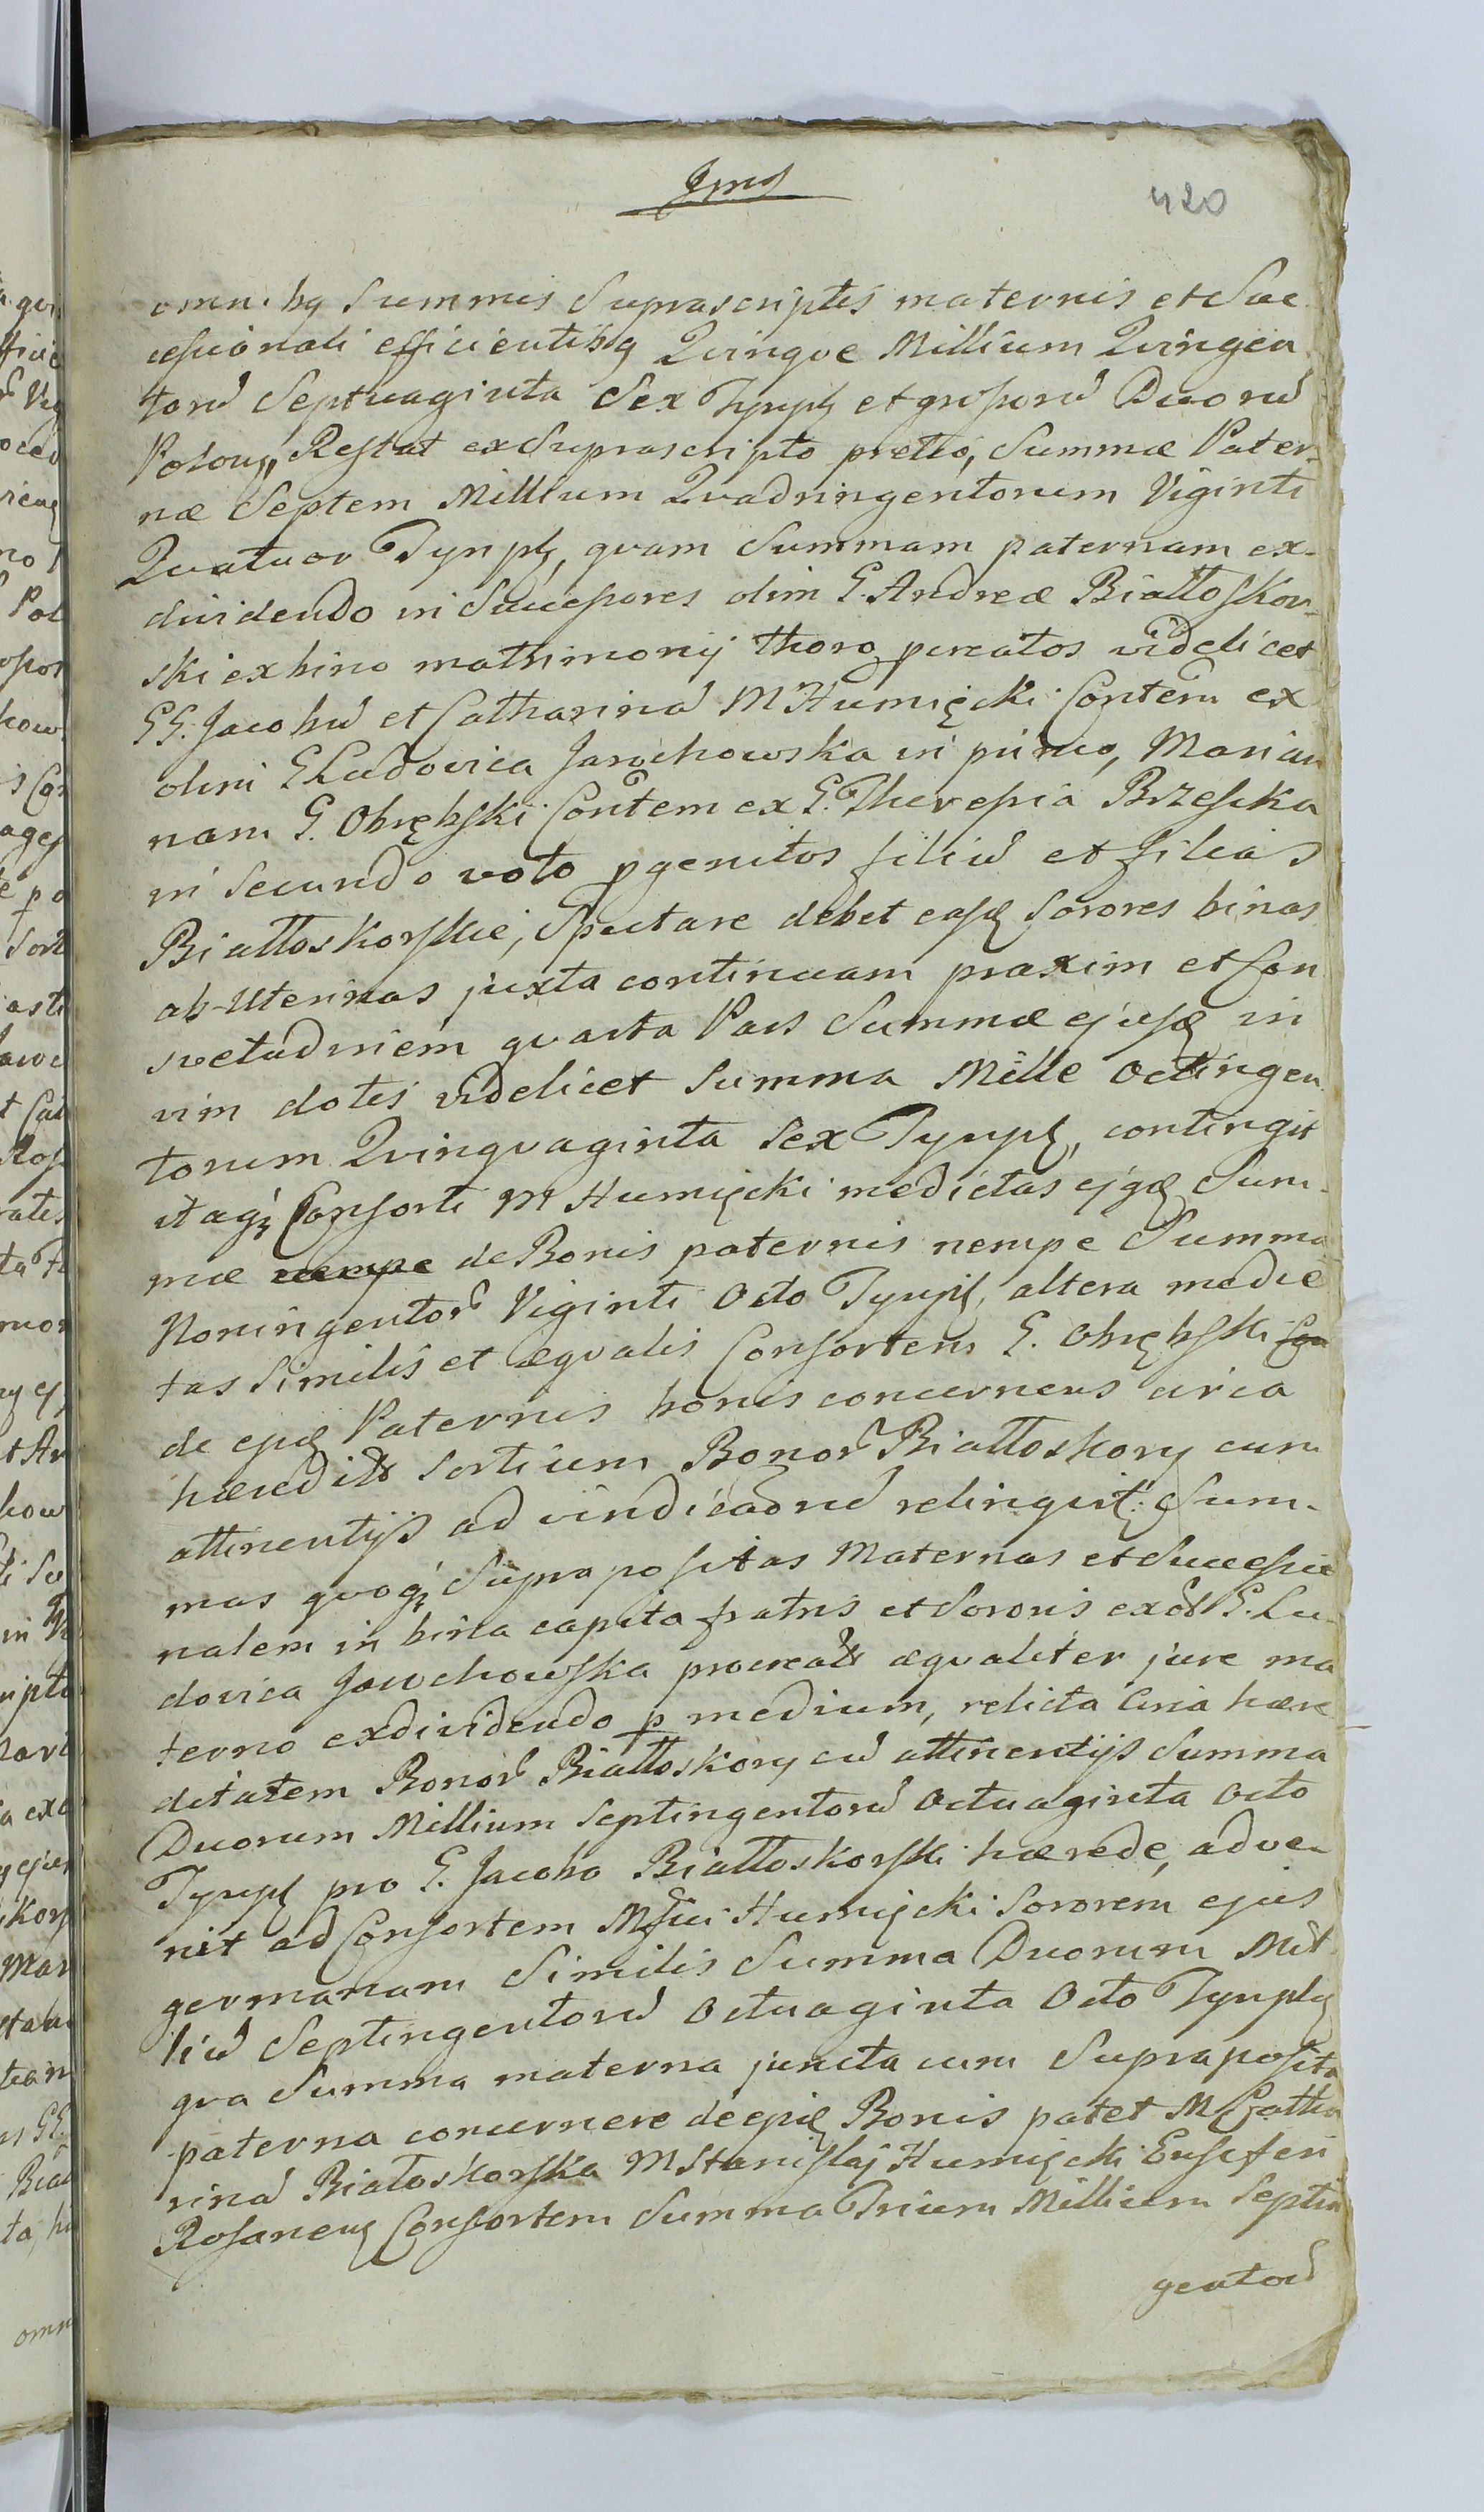 420
omnibq Summis Suprascriptis maternis et Suc
cessionali efficientibq Qvinqve Millium Qvingen
torũ Septuaginta Sex Tynph et grossorũ Duorũ
Polon, Restat ex Suprascripto pretio, Summæ Pater-
næ Septem Millium Qvadringentorum Viginti
Qvatuor Tynph, qvam Summam paternam ex-
dividendo in Successores olim G. Andreæ Białłoskor-
ski ex bino matrimonij thoro pcreatos videlicet
GG. Jacobũ et Catharinã M Humięcki Contem ex
olim G Ludovica Jarochowska in primo, Marian
nam G. Obrębski Contem ex G. Theresia Brzeska
in Secundo voto pgenitos filiũ et filias
Białłoskorskie, Spectare debet easq Sorores binas
ab-Uterinas juxta continuam praxim et Con
svetudinem qvarta Pars Summæ ejusq in
vim dotis videlicet Summa Mille Octingen
torum Qvinqvaginta Sex Tynph, contingit
itaqʒ Consorti M Humięcki medietas ejqæ Sum-
mæ nempe de Bonis paternis nempe Summa
Noningentor Viginti Octo Tynph, altera medie
tas Similis et æqvalis Consortem G. Obrębski Con
de ejsq Paternis bonis concernens circa
hæredit Sortium Bonor Białłoskory cum
attinentijs ad vindicandũ relinqvit: Sum-
mas qvoqʒ Suprapositas Maternas et Successio
nalem in bina capita fratris et Sororis ex G. Lu-
dovica Jarochowska procreat æqvaliter jure ma
terno exdividendo p medium, relicta circa hære
ditatem Bonor Białłoskory cũ attinentijs Summa
Duorum Millium Septingentorũ Octuaginta Octo
Tynph pro G. Jacobo Białłoskorski hærede, adve-
nit ad Consortem Mfici Humięcki Sororem ejus
germanam Similis Summa Duorum Mil
liũ Septingentorũ Octuaginta Octo Tynph
qva Summa materna juncta cum Supraposita
paterna concernere de ejsq Bonis patet M Catha
rinã Białoskorska M Stanislaj Humięcki Ensiferi
Rosanen Consortem Summa Trium Millium Septin
gentorũ